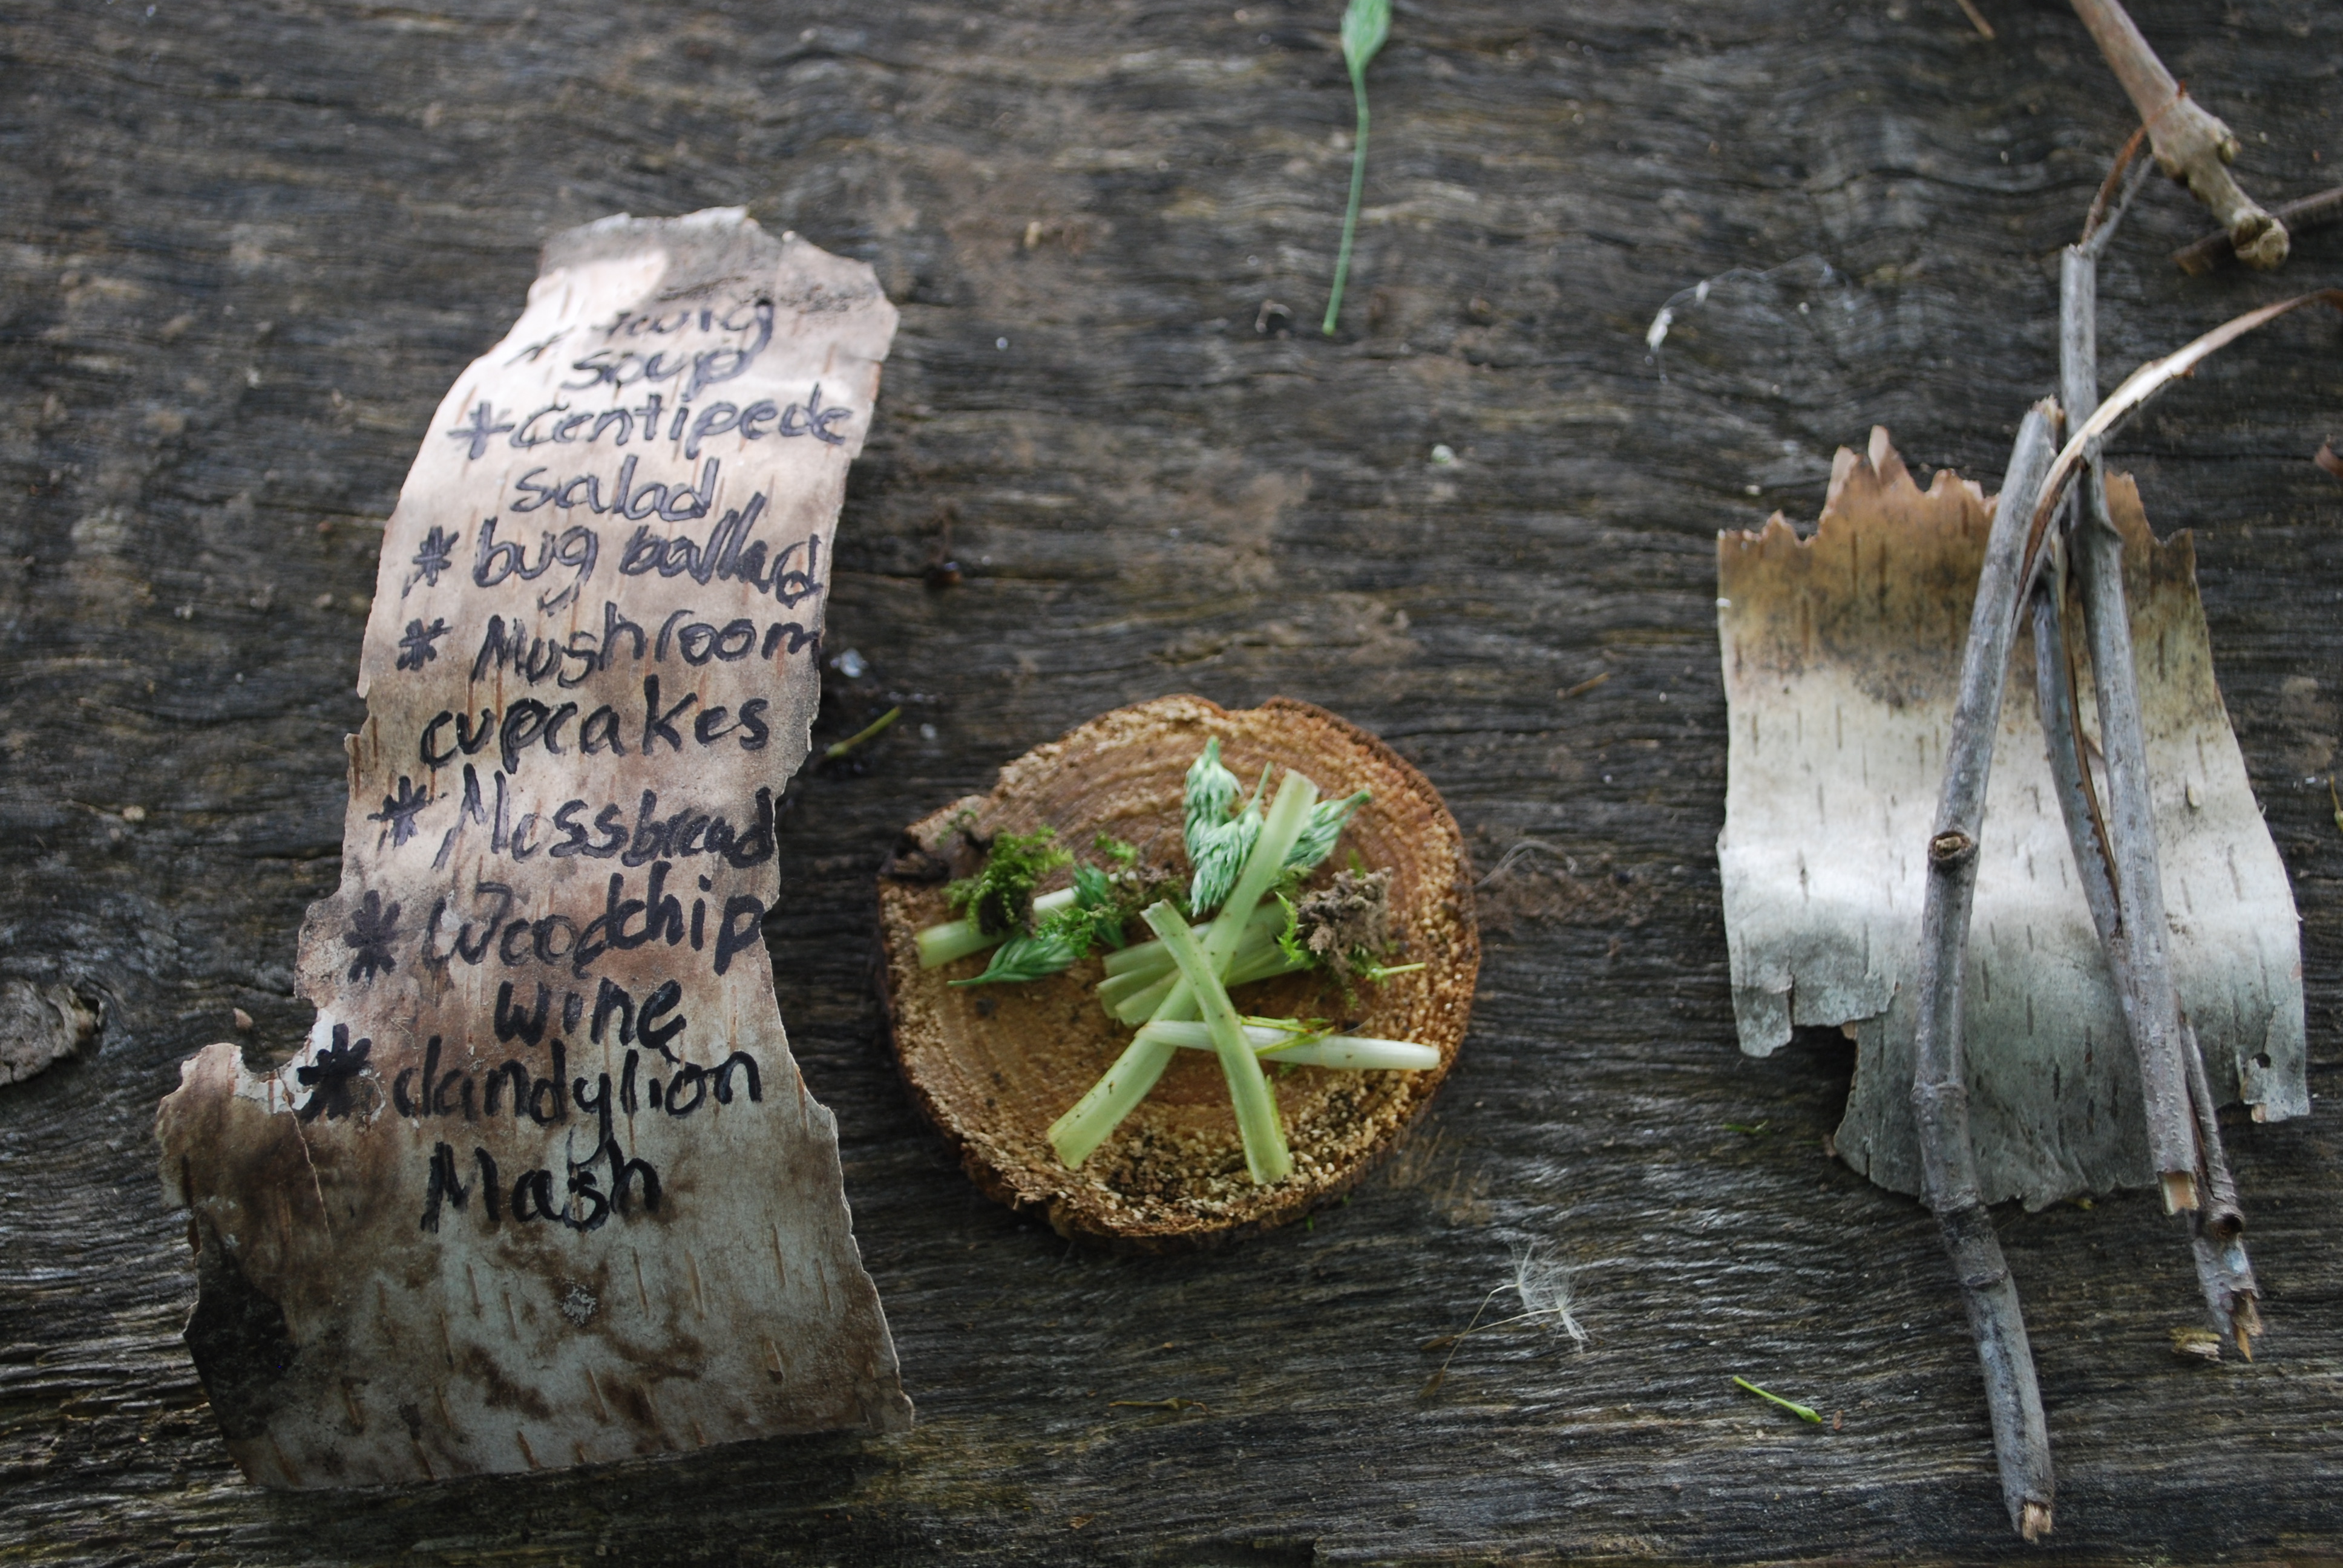 * Twig
soup
*centipede
salad
* bug ballad
* Mushroom
cupcakes
* Mossbread
* Woodchip
wine
* dandylion
Mash